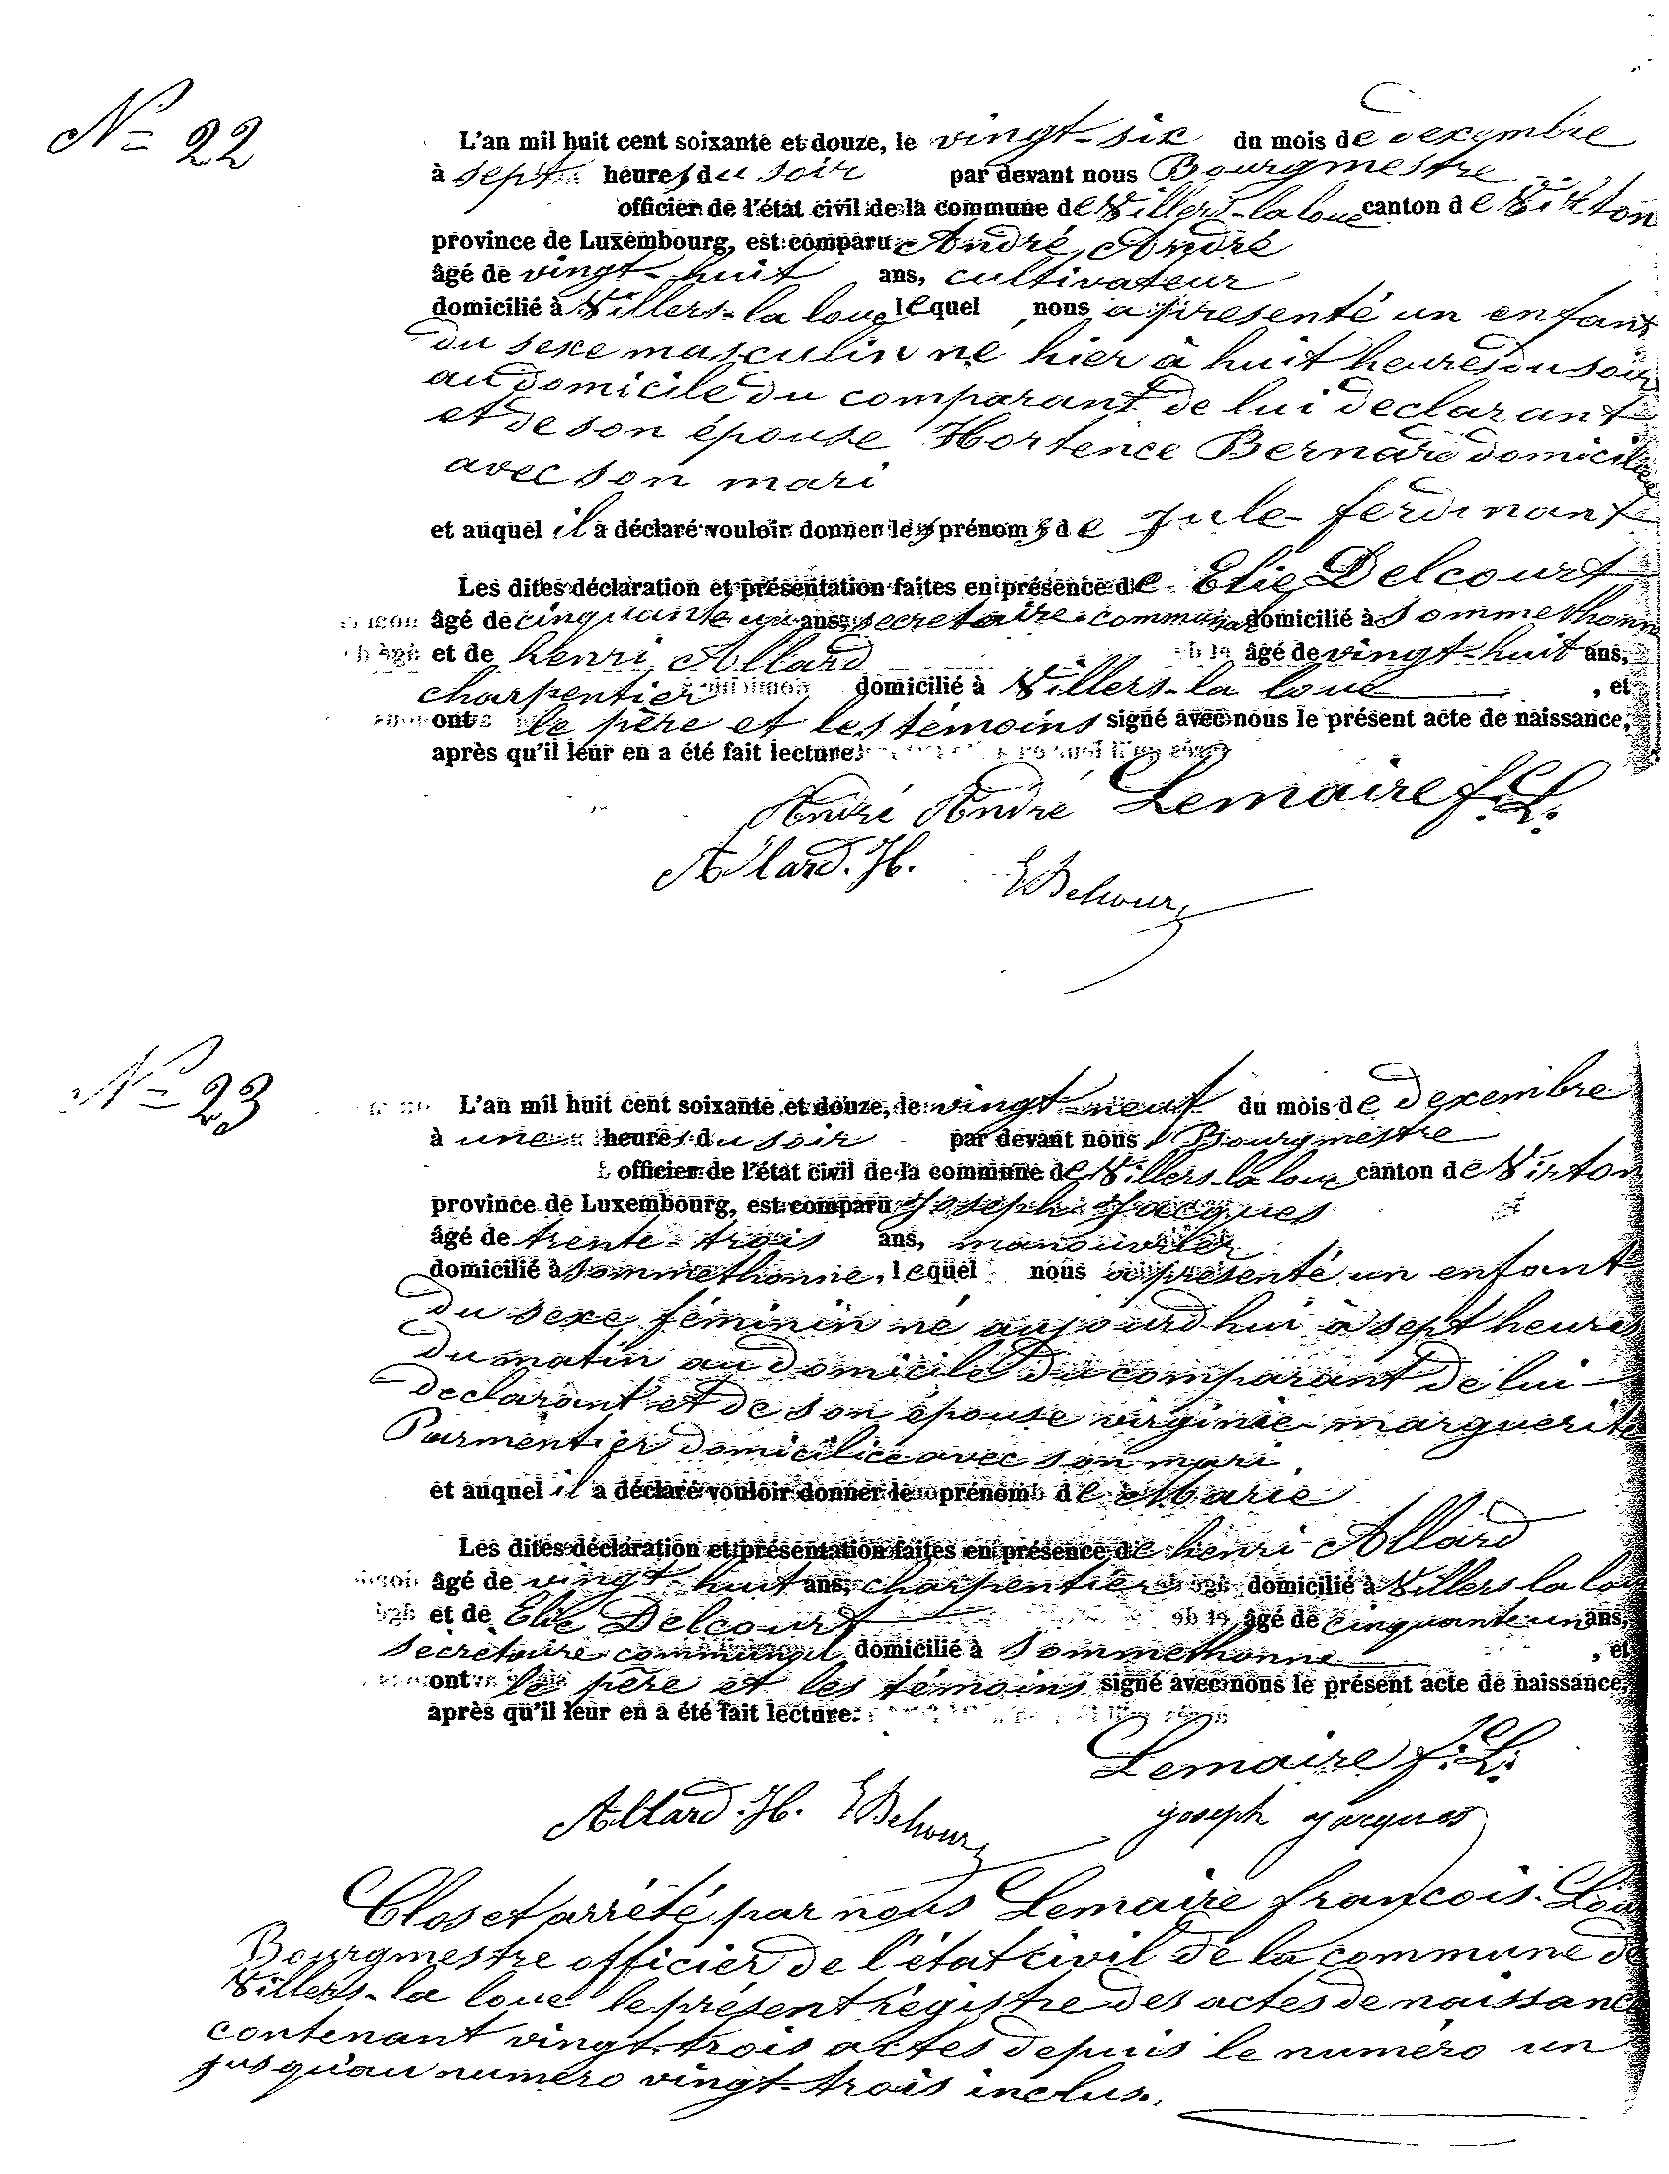 N° 22
L'an mil huit cent soixante et douze, le vingt-six du mois de decembre
à sept heures du soir par devant nous Bourgmestre
officier de l'état civil de la commune de Villers-la loue canton de Virton
province de Luxembourg, est comparu André, André
âgé de vingt-huit ans, cultivateur
domicilié à Villers-la loue lequel nous a presenté un enfant
du sexe masculin né hier à huit heures du soir
au domicile du comparant de lui declarant
et de son épouse Hortence Bernard domiciliée
avec son mari
et auquel il a déclaré vouloir donner les prénoms de Jule ferdinant
Les dites déclaration et présentation faites en présence de Elie Delcourt
âgé de cinquante un ans, secretaire communal domicilié à Sommethonne
et de henri Allard âgé de vingt-huit ans,
charpentier domicilié à Villers-la loue , et
ont le père et les témoins signé avec nous le présent acte de naissance,
après qu'il leur en a été fait lecture.
André André Lemaire f. L.
Allard. H. E Delcour
N° 23
L'an mil huit cent soixante et douze, le vingt-neuf du mois de decembre
à une heures du soir par devant nous Bourgmestre
officier de l'état civil de la commune de Villers-la loue canton de Virton
province de Luxembourg, est comparu Joseph Jacques
âgé de trente-trois ans, manouvrier
domicilié à Sommethonne, lequel nous a presenté un enfant
du sexe féminin né aujourd'hui à sept heures
du matin au domicile du comparant de lui
declarant et de son épouse virginie-marguerite
Parmentier domiciliée avec son mari.
et auquel il a déclaré vouloir donner le prénom de Marie
Les dites déclaration et présentation faites en présence de henri Allard
âgé de vingt huit ans, charpentier domicilié à Villers la loue
et de Elie Delcourt âgé de cinquante un ans,
secretaire communal domicilié à Sommethonne , et
ont le père et les témoins signé avec nous le présent acte de naissance,
après qu'il leur en a été fait lecture.
Lemaire f. L.
Allard. H. E Delcour joseph jacques
Clos et arrêté par nous Lemaire françois-
Bourgmestre officier de l'état civil de la commune de
Villers-la loue le présent régistre des actes de naissance
contenant vingt-trois actes depuis le numéro un
jusqu'au numéro vingt-trois inclus.